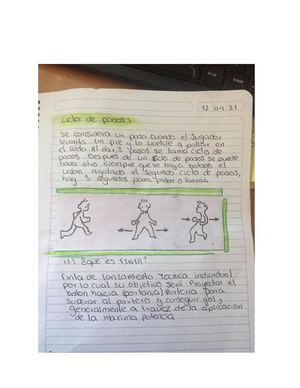 12 04 21
Ciclo de pasos:
Se considera un paso cuando el jugador
levanta un pie y lo vuelve a pallar en
el suelo al dar, 3 pasos se llama ciclo de
pasos. Despues de un ciclo de pasos se puede
hacer otro siempre que se haya botado el
balon, agotado el segundo ciclo de pasos,
hay 3 segundos para pasar o lanzar.
4) ¿Qué es FINTA?
Finta de lanzamiento Tecnica individual
por lo cual su objetivo será: Proyectar el
balon hacia (portería) Portería para
superar al portero y conseguir gol,
generalmente a traves de la aplicacion
de la maxima potencia